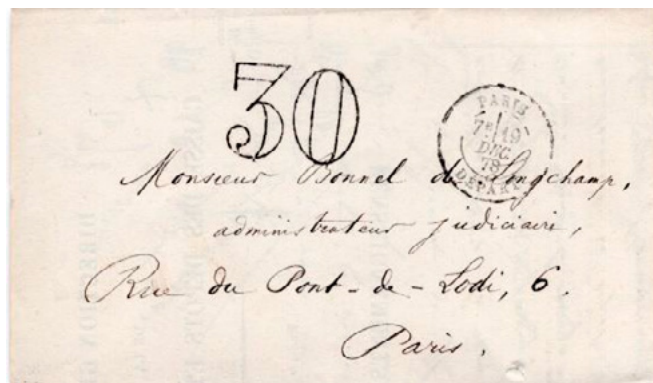 30
PARIS
7E 19
DEC.
78
DEPART
Monsieur Bonnel de Longchamp,
administrateur judiciaire,
Rue du Pont-de-Lodi, 6.
Paris.